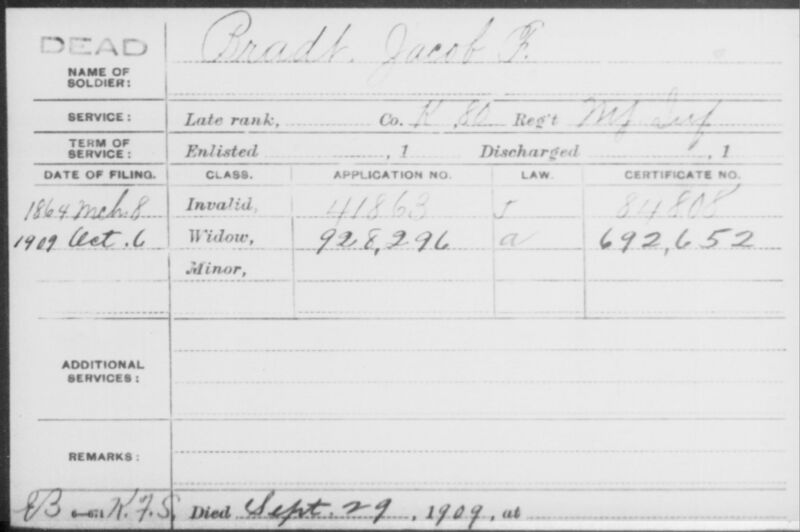 DEAD Bradt, Jacob F.
NAME OF SOLDIER:
SERVICE: Late rank, Co. K 80 Reg't NY Inf
TERM OF SERVICE: Enlisted , 1 Discharged , 1
DATE OF FILING. CLASS. APPLICATION NO. LAW. CERTIFICATE NO.
1864 Mch. 8 Invalid, 41863 J 84808
1909 Oct. 6 Widow, 928,296 a 692,652
Minor,
ADDITIONAL SERVICES:
REMARKS:
K.F.S. Died Sept. 29, 1909, at